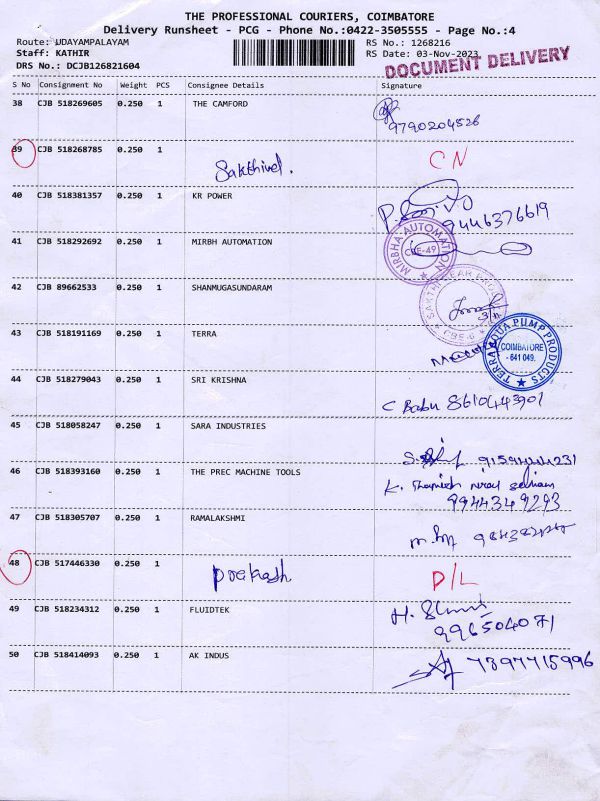 THE PROFESSIONAL COURIERS, COIMBATORE
Delivery Runsheet - PCG - Phone No.:0422-3505555 - Page No.:4
Route: UDAYAMPALAYAM RS No.: 1268216
Staff: KATHIR RS Date: 03-Nov-2023
DRS No.: DCJB126821604 DOCUMENT DELIVERY
S No Consignment No Weight PCS Consignee Details Signature
38 CJB 518269605 0.250 1 THE CAMFORD
9790204526
39 CJB 518268785 0.250 1 Sakthivel. CN
40 CJB 518381357 0.250 1 KR POWER
9446376619
41 CJB 518292692 0.250 1 MIRBH AUTOMATION
MIRBHA AUTOMATION
CBE-49
42 CJB 89662533 0.250 1 SHANMUGASUNDARAM
3/11
43 CJB 518191169 0.250 1 TERRA
TERRA AQUA PUMP PRODUCTS
COIMBATORE
- 641 049.
44 CJB 518279043 0.250 1 SRI KRISHNA
C Babu 8610443901
45 CJB 518058247 0.250 1 SARA INDUSTRIES
9159444231
46 CJB 518393160 0.250 1 THE PREC MACHINE TOOLS
9944349293
47 CJB 518305707 0.250 1 RAMALAKSHMI
48 CJB 517446330 0.250 1 Prekash D/L
49 CJB 518234312 0.250 1 FLUIDTEK
996504071
50 CJB 518414093 0.250 1 AK INDUS
7397715996